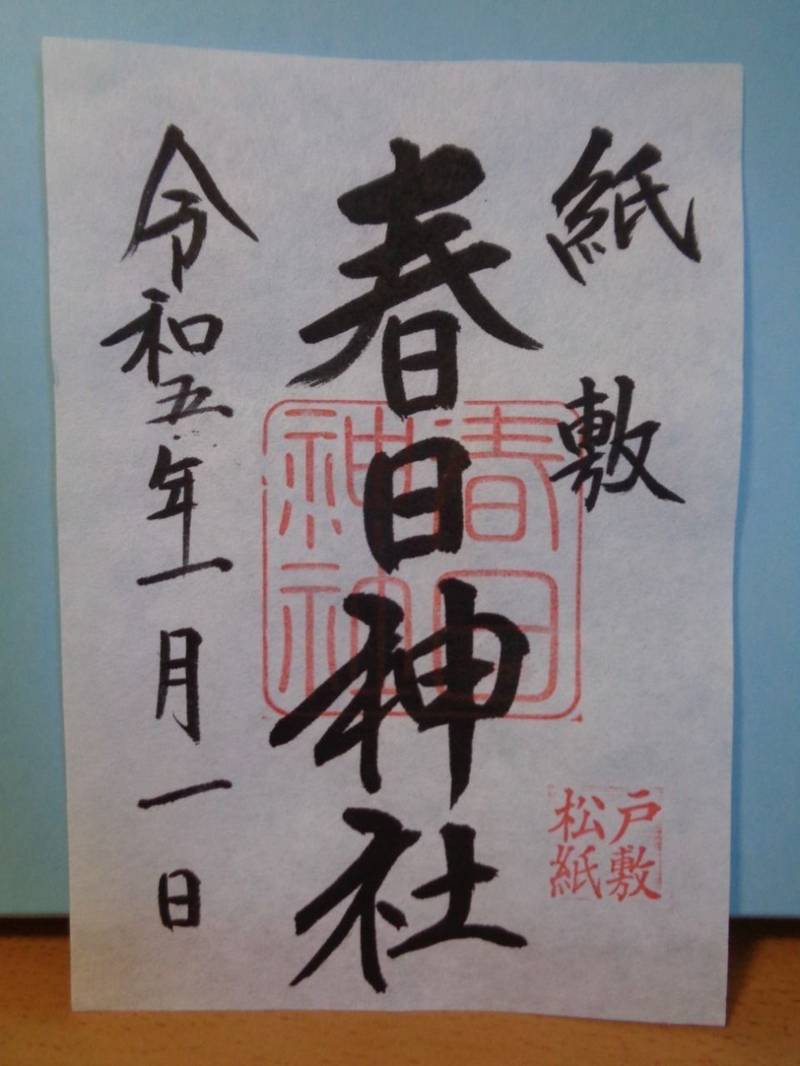 紙敷
春日神社
令和五年一月一日
春日
神
松戸
紙敷